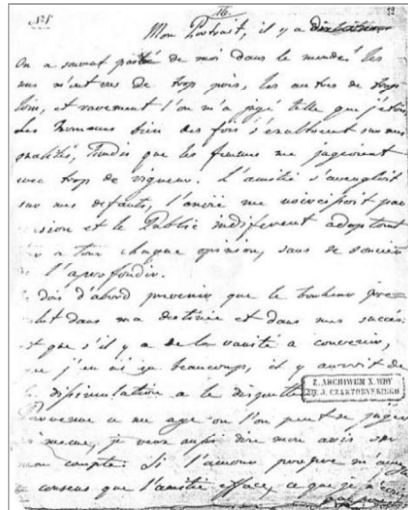 No 1 16 11
Mon Portrait, il y a
On a souvent parlé de moi dans le monde! les
uns m'ont vus de trop près, les autres de trop
loin, et rarement l'on m'a jugé telle que j'étois
Les hommes bien des fois s'exaltoient sur mes
qualités, Tandis que les femmes me jugeoient
avec trop de rigueur. L'amitié s'aveugloit
sur mes défauts, l'envie me noircissoit par
et le Public indiferent adoptant
a tour chaque opinion, sans se soucier
de l'aprofondir.
dois d'abord prevenir que le bonheur
dans ma destinée et dans mes succès
et que s'il y a de la vanité a convenir,
que j'en ai eu beaucoups, il y auroit de
la dissimulation a le
Z ARCHIWUM X. XDY
J. CZARTORYSKIEGO
Parvenue a un age ou l'on peut se juger
meme, je veux aussi dire mon avis sur
mon compte. Si l'amour propre m'
consens que l'amitié efface, ce que je